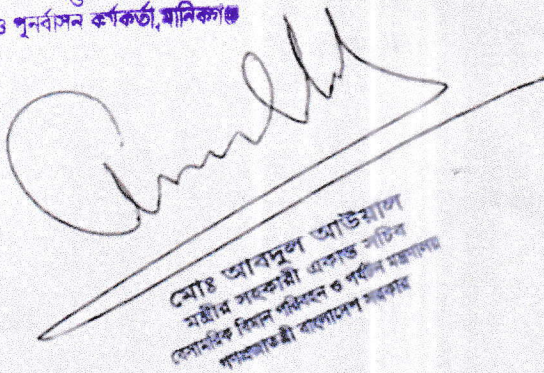 ও পুনর্বাসন কর্মকর্তা, মানিকগঞ্জ
মোঃ আবদুল আউয়াল
মন্ত্রীর সহকারী একান্ত সচিব
বেসামরিক বিমান পরিবহন ও পর্যটন মন্ত্রণালয়
গণপ্রজাতন্ত্রী বাংলাদেশ সরকার